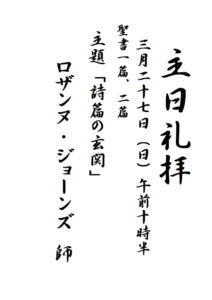 主日礼拝
三月二十七日(日)午前十時半
聖書一篇、二篇
主題「詩篇の玄関」
ロザンヌ・ジョーンズ 師